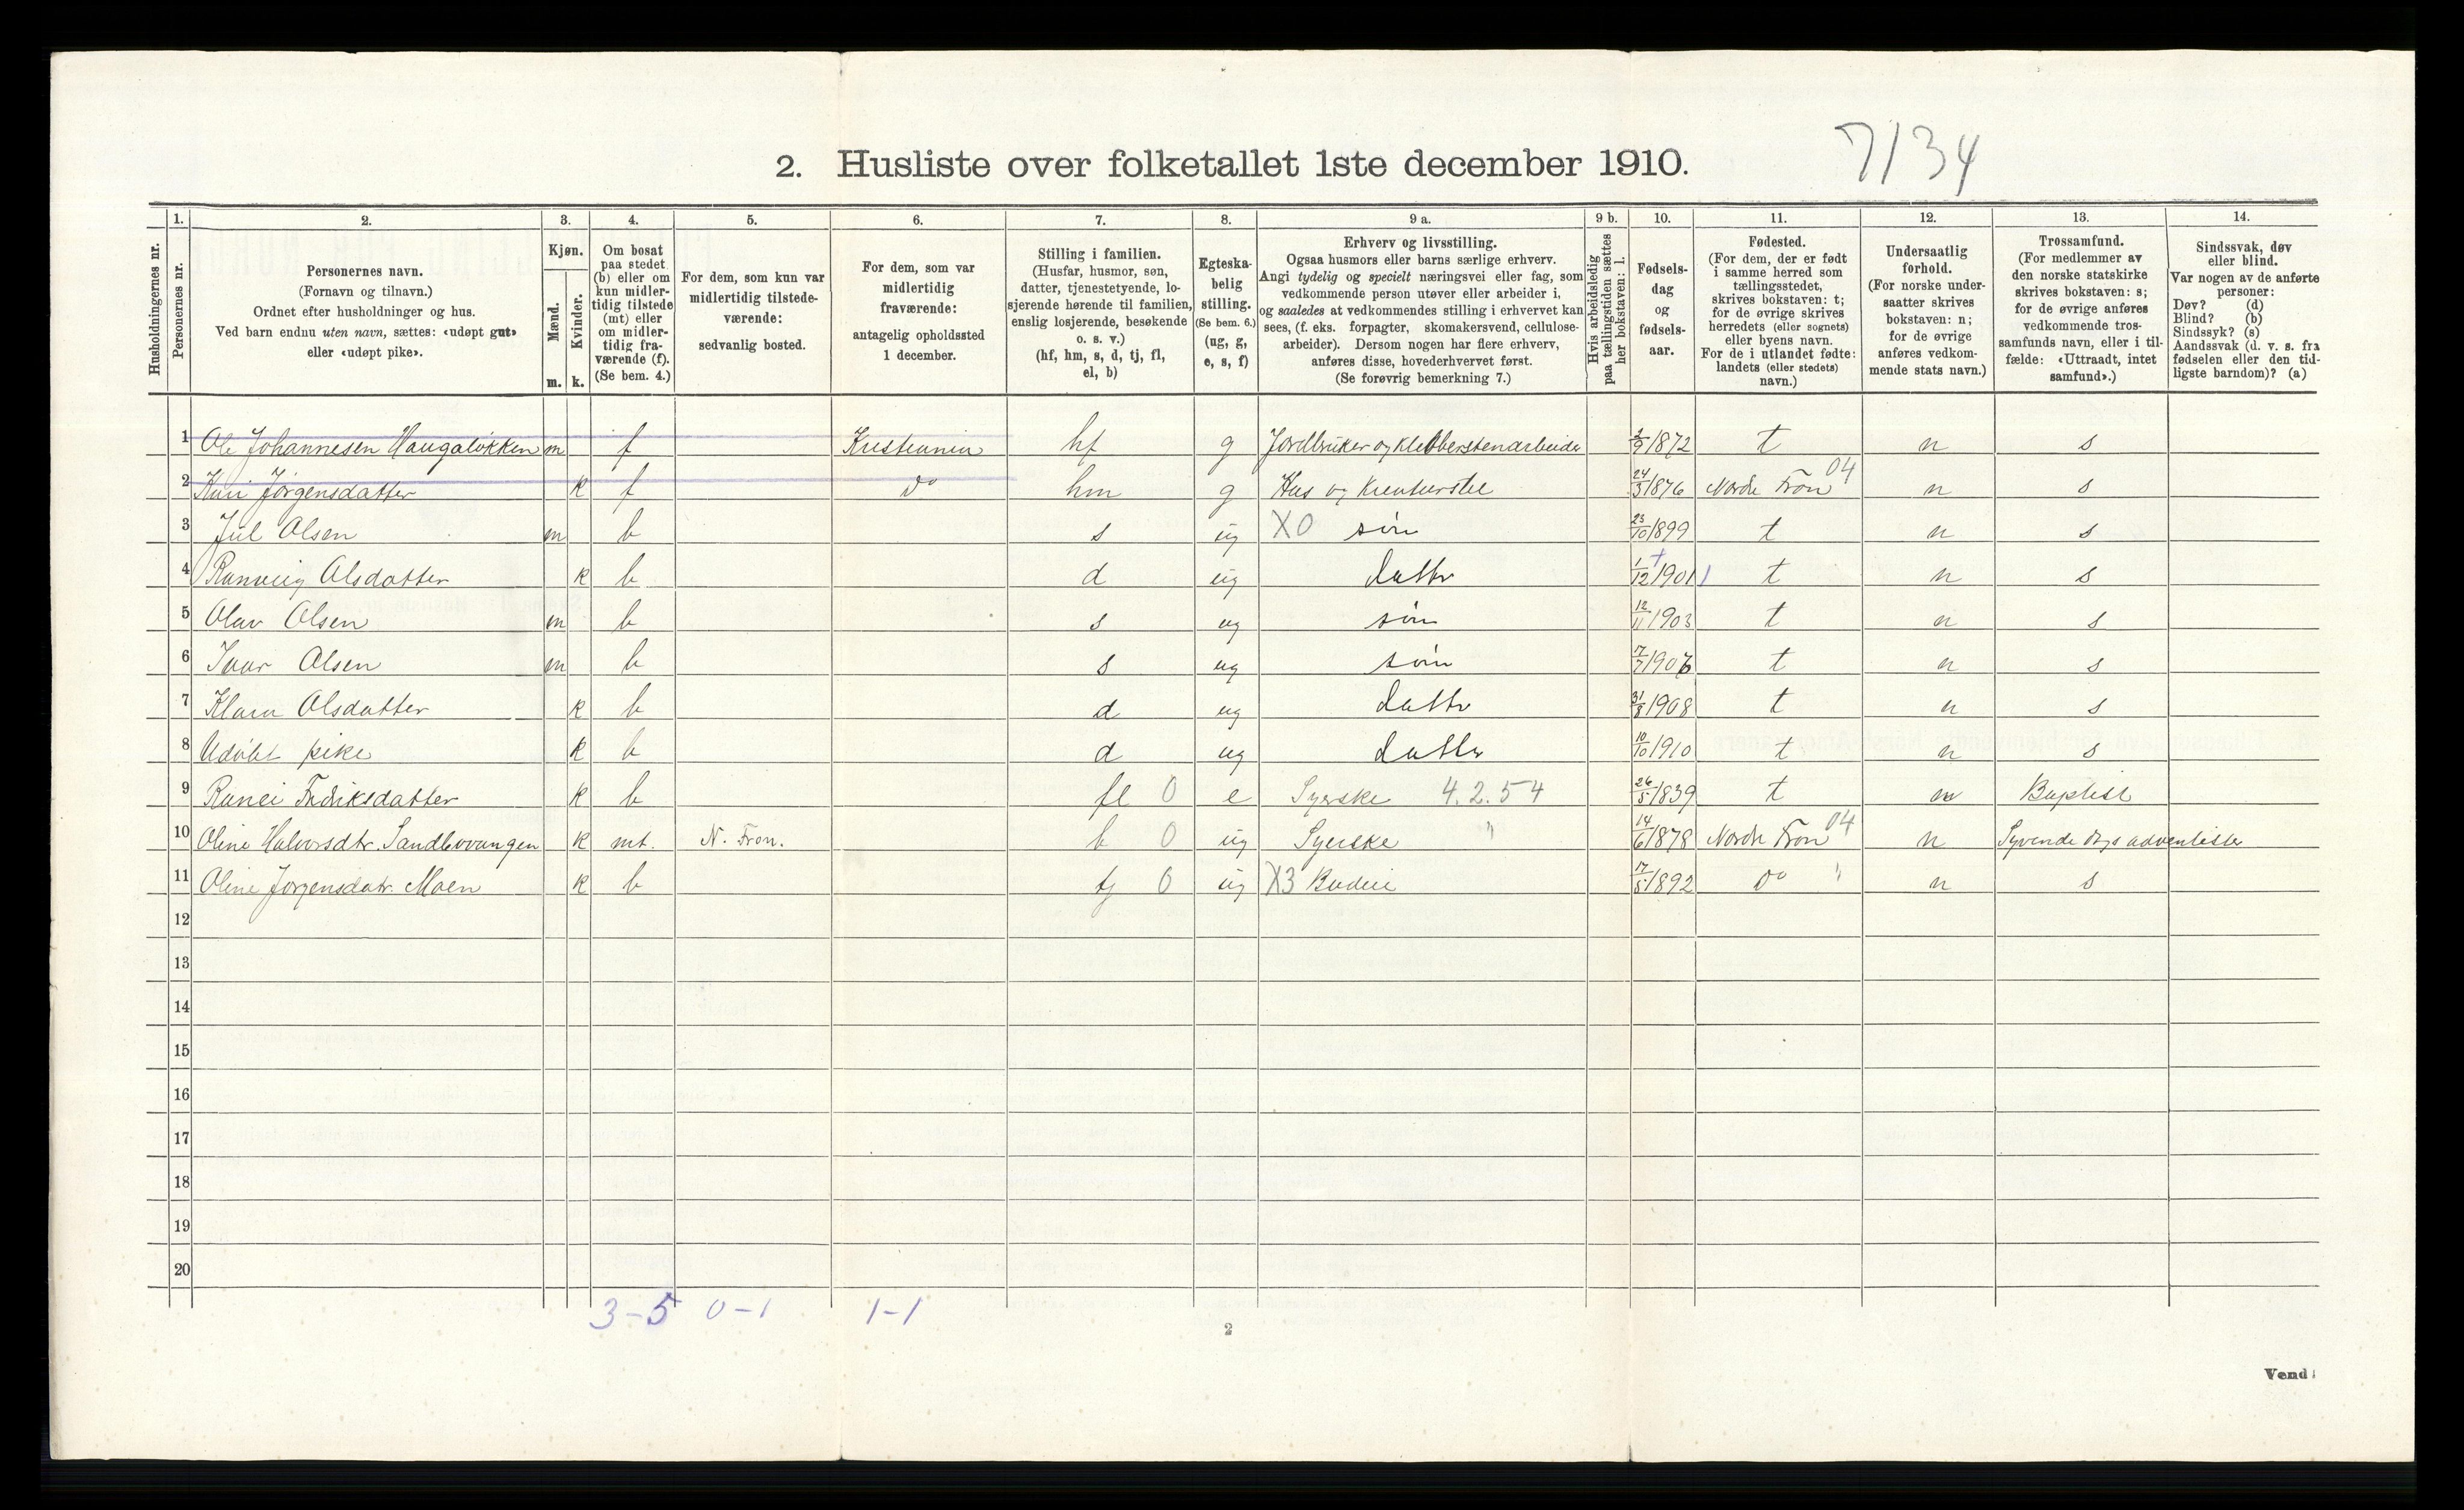 7134
2. Husliste over folketallet 1ste december 1910.
Husholdningernes nr.
1. Personernes nr.
2. Personernes navn. (Fornavn og tilnavn.) Ordnet efter husholdninger og hus. Ved barn endnu uten navn, sættes: «udøpt gut» eller «udøpt pike».
3. Kjøn. Mænd. m. Kvinder. k.
4. Om bosat paa stedet (b) eller om kun midlertidig tilstede (mt) eller om midlertidig fraværende (f). (Se bem. 4.)
5. For dem, som kun var midlertidig tilstedeværende: sedvanlig bosted.
6. For dem, som var midlertidig fraværende: antagelig opholdssted 1 december.
7. Stilling i familien. (Husfar, husmor, søn, datter, tjenestetyende, losjerende hørende til familien, enslig losjerende, besøkende o. s. v.) (hf, hm, s, d, tj, fl, el, b)
8. Egteskabelig stilling. (Se bem. 6.) (ug, g, e, s, f)
9 a. Erhverv og livsstilling. Ogsaa husmors eller barns særlige erhverv. Angi tydelig og specielt næringsvei eller fag, som vedkommende person utøver eller arbeider i, og saaledes at vedkommendes stilling i erhvervet kan sees, (f. eks. forpagter, skomakersvend, cellulosearbeider). Dersom nogen har flere erhverv, anføres disse, hovederhvervet først. (Se forøvrig bemerkning 7.)
9 b. Hvis arbeidsledig paa tællingstiden sættes her bokstaven: l.
10. Fødselsdag og fødselsaar.
11. Fødested. (For dem, der er født i samme herred som tællingsstedet, skrives bokstaven: t; for de øvrige skrives herredets (eller sognets) eller byens navn. For de i utlandet fødte: landets (eller stedets) navn.)
12. Undersaatlig forhold. (For norske undersaatter skrives bokstaven: n; for de øvrige anføres vedkommende stats navn.)
13. Trossamfund. (For medlemmer av den norske statskirke skrives bokstaven: s; for de øvrige anføres vedkommende trossamfunds navn, eller i tilfælde: «Uttraadt, intet samfund».)
14. Sindssvak, døv eller blind. Var nogen av de anførte personer: Døv? (d) Blind? (b) Sindssyk? (s) Aandssvak (d. v. s. fra fødselen eller den tidligste barndom)? (a)
1 Ole Johannesen Haugaløkken m f Kristiania hf g Jordbruker og klebberstenarbeider 2/9 1872 t n s
2 Kari Jørgensdatter k f do hm g Hus og kreaturstel 24/3 1876 Nordre Fron 04 n s
3 Jul Olsen m b s ug X0 søn 23/10 1899 t n s
4 Ranveig Olsdatter k b d ug datter 1/12 1901 t n s
5 Olav Olsen m b s ug søn 12/11 1903 t n s
6 Ivar Olsen m b s ug søn 7/7 1906 t n s
7 Klara Olsdatter k b d ug datter 31/8 1908 t n s
8 Udøbt pike k b d ug datter 10/10 1910 t n s
9 Ranei Fredriksdatter k b fl 0 e Syerske 4.2.54 26/5 1839 t n Baptist
10 Oline Halvorsdtr. Sandbovangen k mt. N. Fron. b 0 ug Syerske " 14/6 1878 Nordre Fron 04 n Syvende dags adventister
11 Oline Jørgensdatr. Moen k b tj 0 ug X3 Budeie 17/5 1892 do " n s
12
13
14
15
16
17
18
19
20
3-5 0-1 1-1
2
Vend!